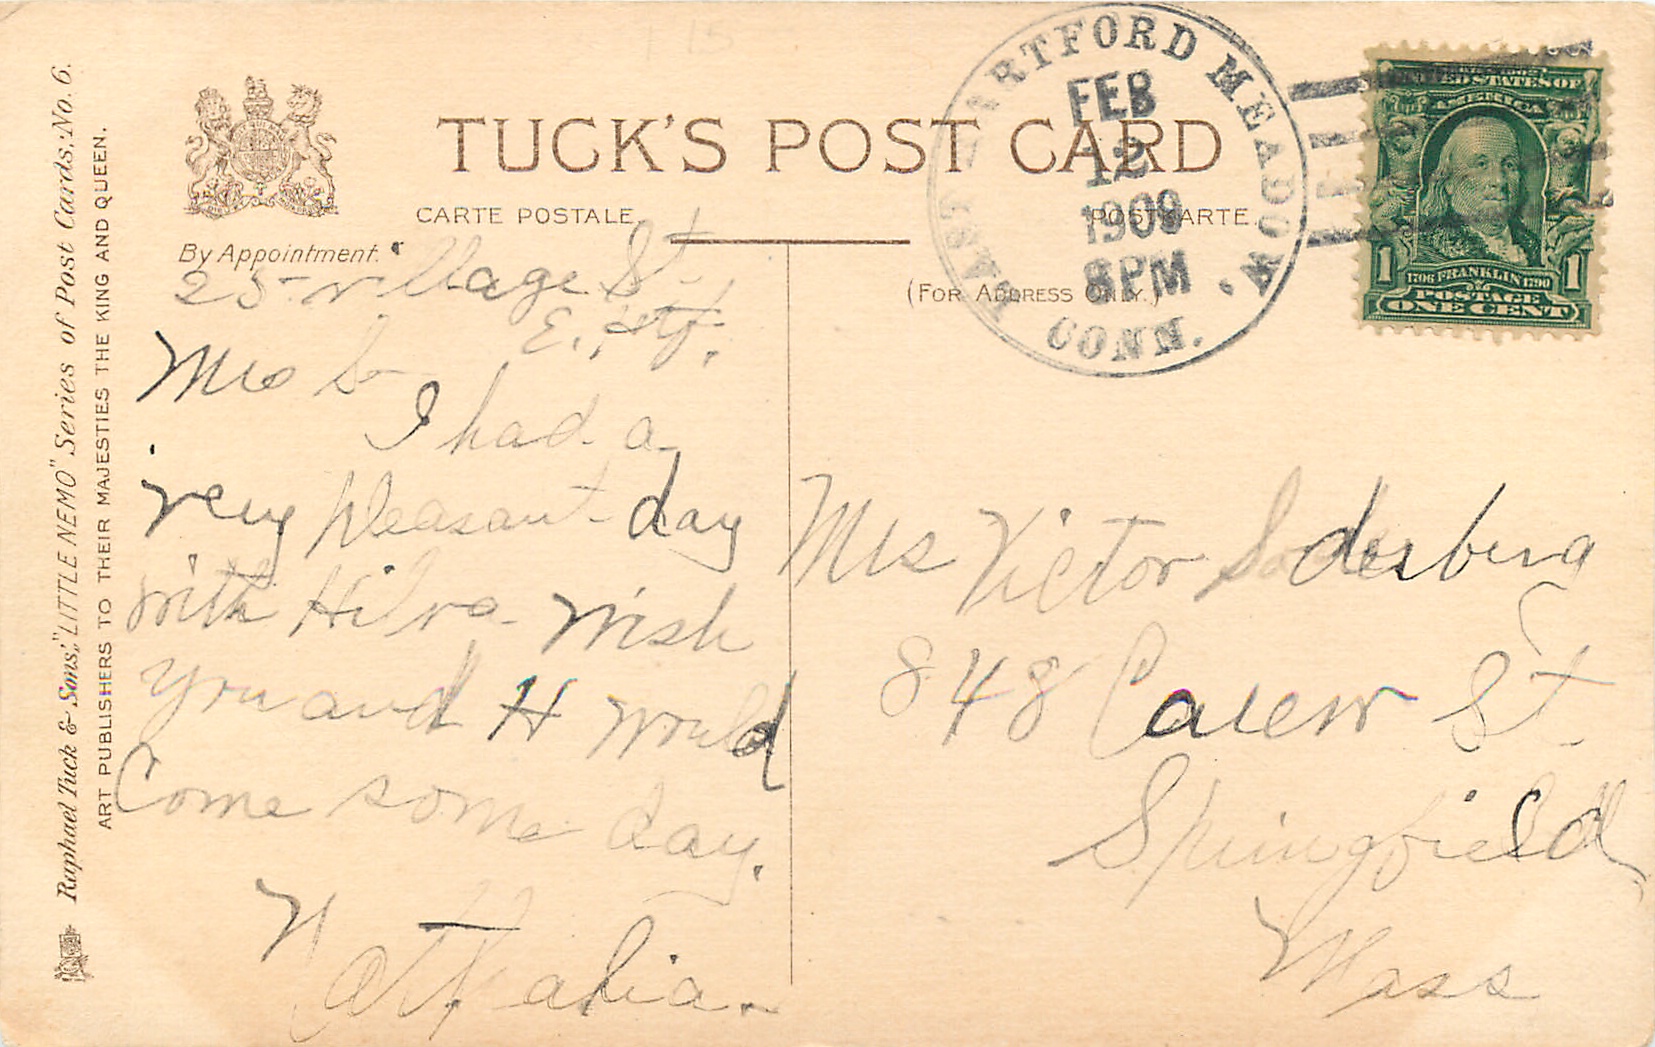 TUCK'S POST CARD
CARTE POSTALE.
POSTKARTE.
By Appointment.
(FOR ADDRESS ONLY.)
Raphael Tuck & Sons', "LITTLE NEMO" Series of Post Cards, No. 6.
ART PUBLISHERS TO THEIR MAJESTIES THE KING AND QUEEN.
EAST HARTFORD MEADOW.
CONN.
FEB
12
1909
8 PM
UNITED STATES OF
AMERICA
1706 FRANKLIN 1790
1 1
POSTAGE
ONE CENT
25 Village St.
E. Htf.
Mrs S—
I had a
very pleasant day
with Hilva. Wish
you and H would
Come some day.
Nathalia.
Mrs Victor Soderberg
848 Carew St.
Springfield
Mass